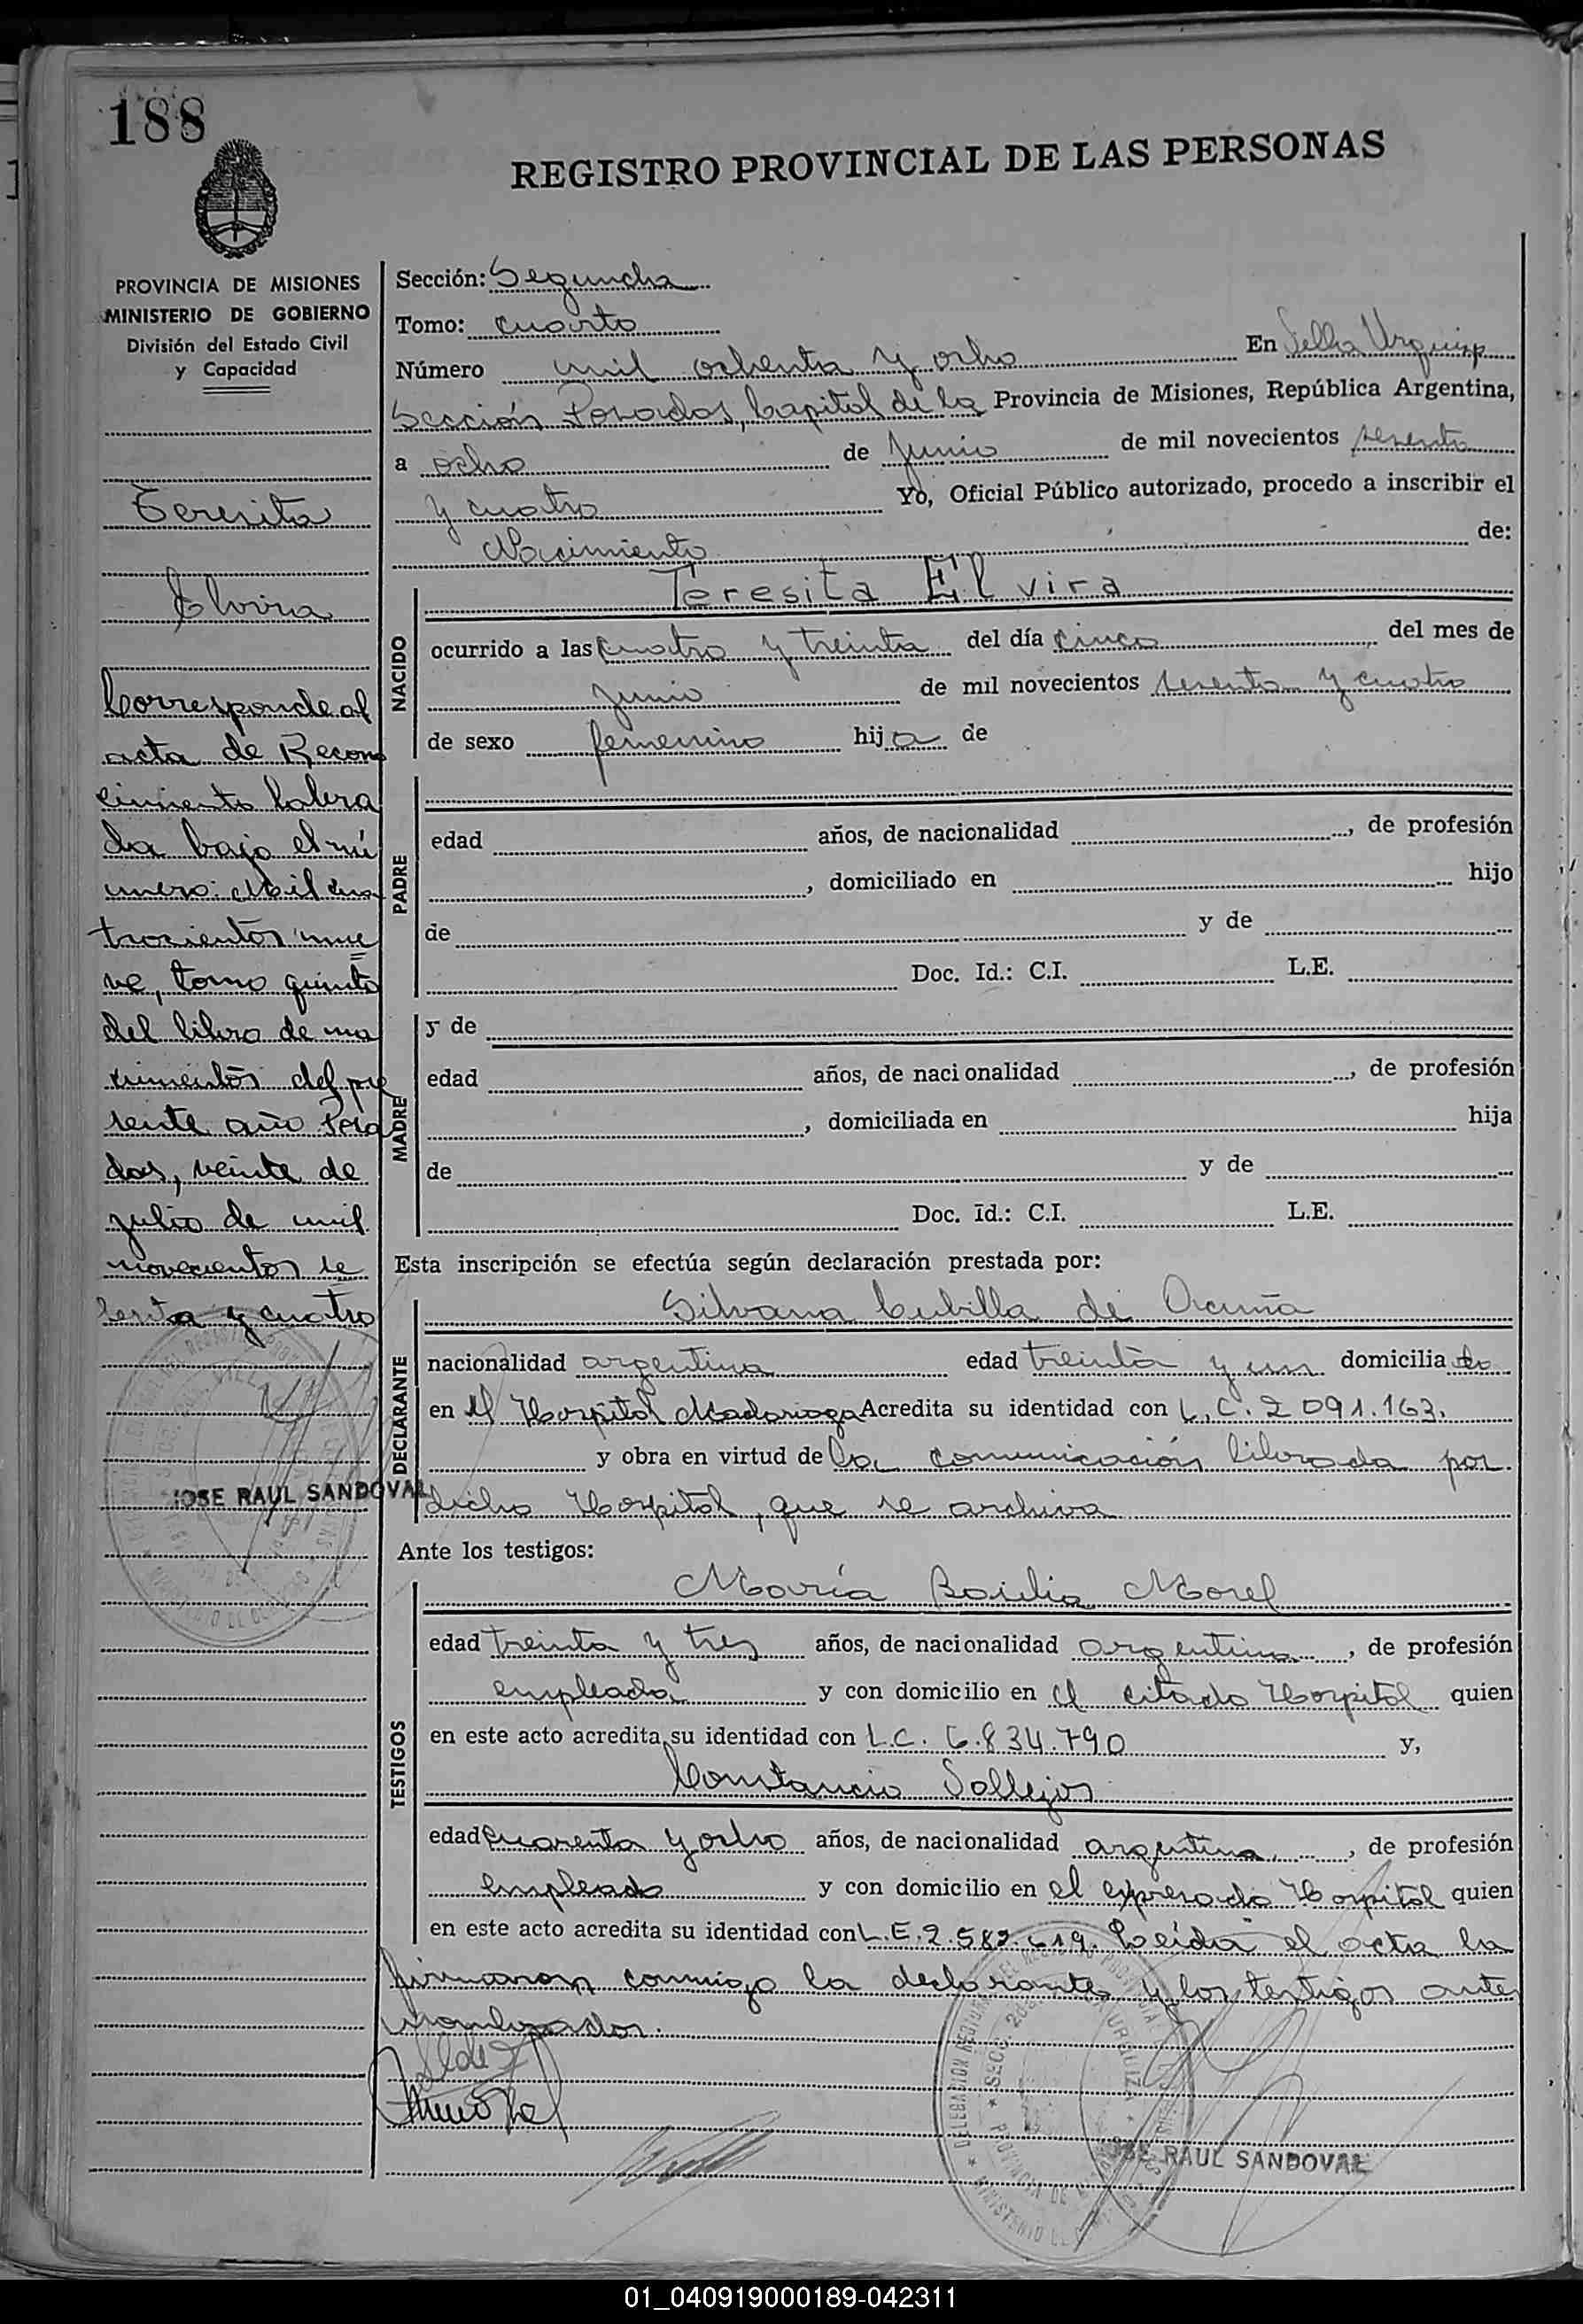 188
REGISTRO PROVINCIAL DE LAS PERSONAS
PROVINCIA DE MISIONES
MINISTERIO DE GOBIERNO
División del Estado Civil
y Capacidad
Teresita
Elvira
Corresponde al
acta de Recono
cimiento labra
da bajo el nú
mero: Mil cua
trocientos nue
ve, tomo quinto
del libro de na
cimientos del pre
sente año Posa
das, veinte de
julio de mil
novecientos se
senta y cuatro
JOSE RAUL SANDOVAL
Sección: Segunda
Tomo: cuarto
Número mil ochenta y ocho En Villa Urquiza
Sección Posadas, Capital de la Provincia de Misiones, República Argentina,
a ocho de junio de mil novecientos sesenta
y cuatro Yo, Oficial Público autorizado, procedo a inscribir el
Nacimiento de:
NACIDO
Teresita Elvira
ocurrido a las cuatro y treinta del día cinco del mes de
junio de mil novecientos sesenta y cuatro
de sexo femenino hija de
PADRE
edad años, de nacionalidad , de profesión
, domiciliado en hijo
de y de
Doc. Id.: C.I. L.E.
MADRE
y de
edad años, de nacionalidad , de profesión
, domiciliada en hija
de y de
Doc. Id.: C.I. L.E.
Esta inscripción se efectúa según declaración prestada por:
DECLARANTE
Silvana Cubilla de Acuña
nacionalidad argentina edad treinta y un domicilia do
en el Hospital Madariaga Acredita su identidad con L.C. 2 091.163.
y obra en virtud de la comunicación librada por
dicho Hospital, que se archiva
Ante los testigos:
TESTIGOS
María Basilia Morel
edad treinta y tres años, de nacionalidad argentina , de profesión
empleada y con domicilio en el citado Hospital quien
en este acto acredita su identidad con L.C. 6.834.790 y,
Constancio Vallejos
edad cuarenta y ocho años, de nacionalidad argentina, , de profesión
empleado y con domicilio en el expresado Hospital quien
en este acto acredita su identidad con L.E. 2.582.619. Leída el acta la
firmaron conmigo la declarante y los testigos antes
nombrados.
JOSE RAUL SANDOVAL
01_040919000189-042311